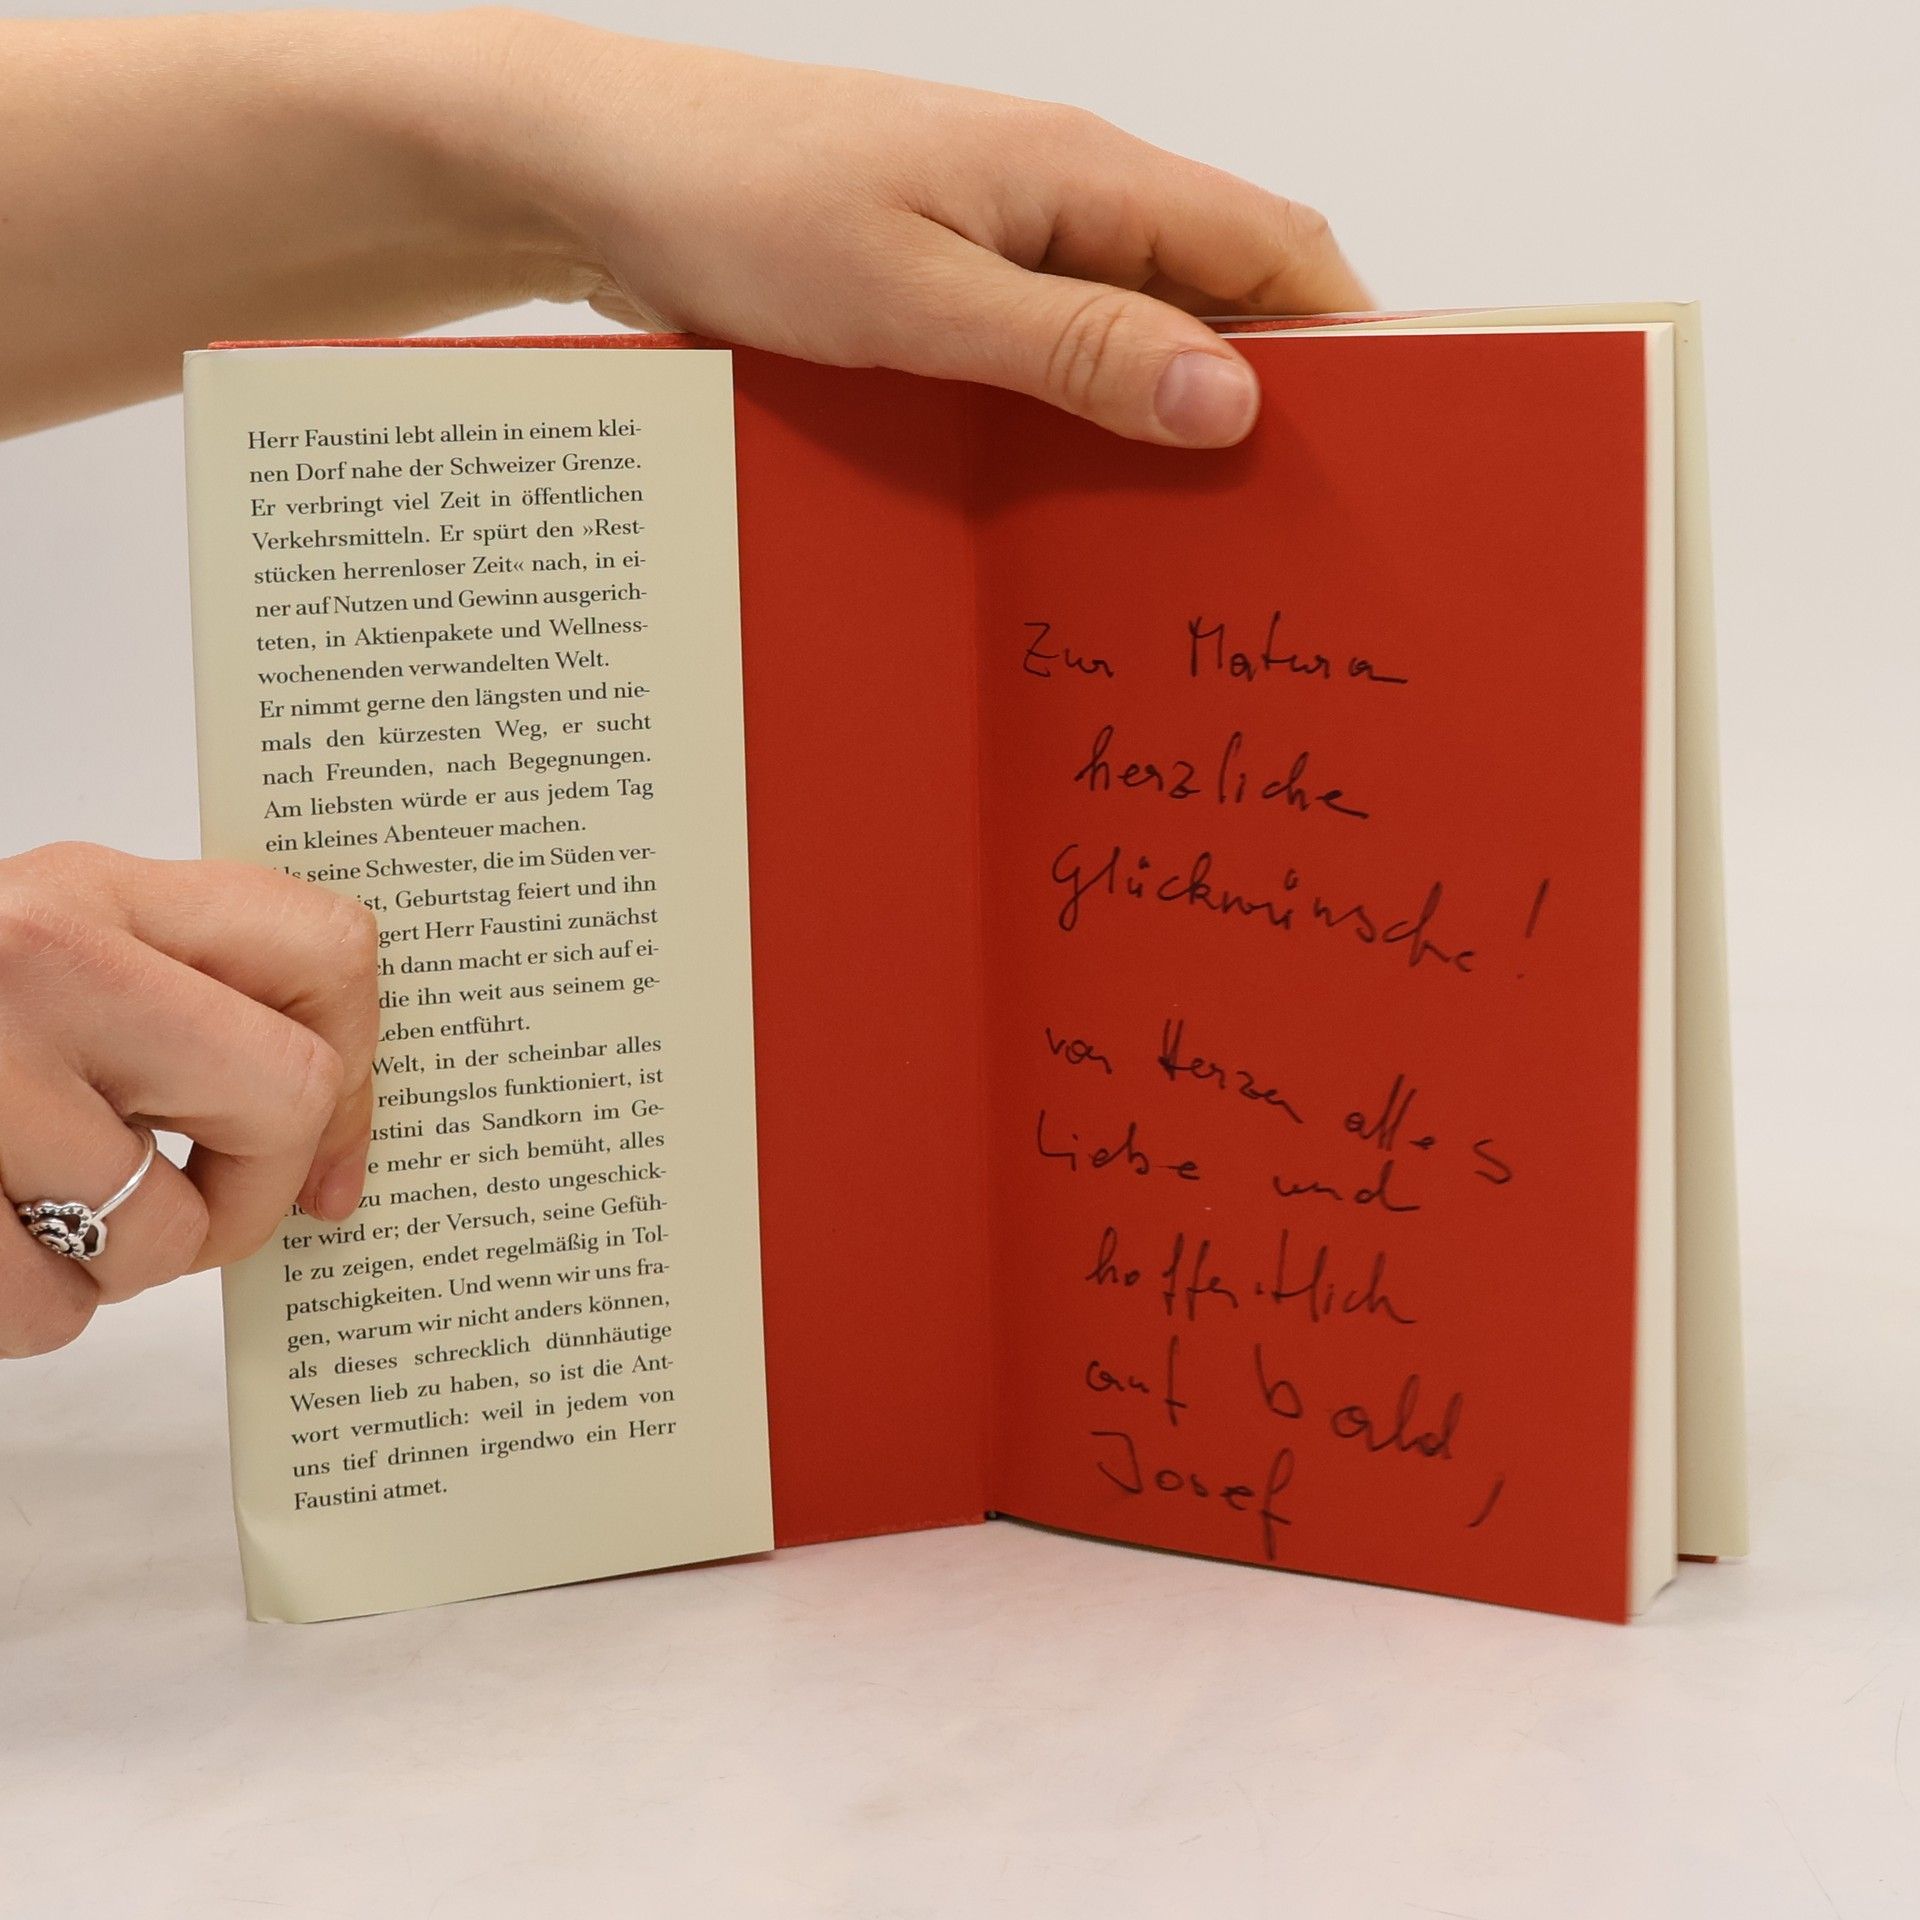 Herr Faustini lebt allein in einem klei-
nen Dorf nahe der Schweizer Grenze.
Er verbringt viel Zeit in öffentlichen
Verkehrsmitteln. Er spürt den »Rest-
stücken herrenloser Zeit« nach, in ei-
ner auf Nutzen und Gewinn ausgerich-
teten, in Aktienpakete und Wellness-
wochenenden verwandelten Welt.
Er nimmt gerne den längsten und nie-
mals den kürzesten Weg, er sucht
nach Freunden, nach Begegnungen.
Am liebsten würde er aus jedem Tag
ein kleines Abenteuer machen.
seine Schwester, die im Süden ver-
ist, Geburtstag feiert und ihn
gert Herr Faustini zunächst
ch dann macht er sich auf ei-
die ihn weit aus seinem ge-
Leben entführt.
Welt, in der scheinbar alles
reibungslos funktioniert, ist
ustini das Sandkorn im Ge-
e mehr er sich bemüht, alles
zu machen, desto ungeschick-
ter wird er; der Versuch, seine Gefüh-
le zu zeigen, endet regelmäßig in Tol-
patschigkeiten. Und wenn wir uns fra-
gen, warum wir nicht anders können,
als dieses schrecklich dünnhäutige
Wesen lieb zu haben, so ist die Ant-
wort vermutlich: weil in jedem von
uns tief drinnen irgendwo ein Herr
Faustini atmet.
Zur Matura
herzliche
Glückwünsche!
von Herzen alles
Liebe und
hoffentlich
auf bald,
Josef